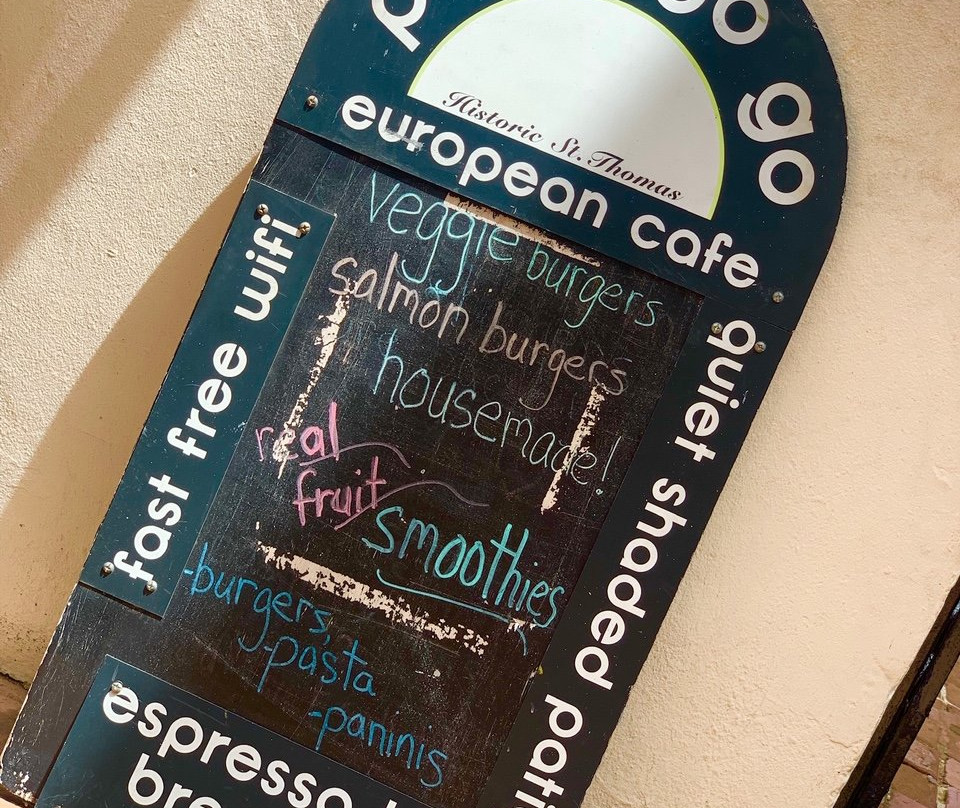 go
Historic St. Thomas
european cafe
fast free wifi
veggie burgers
salmon burgers
housemade!
real
fruit
smoothies
-burgers,
-pasta
-paninis
quiet shaded
espresso